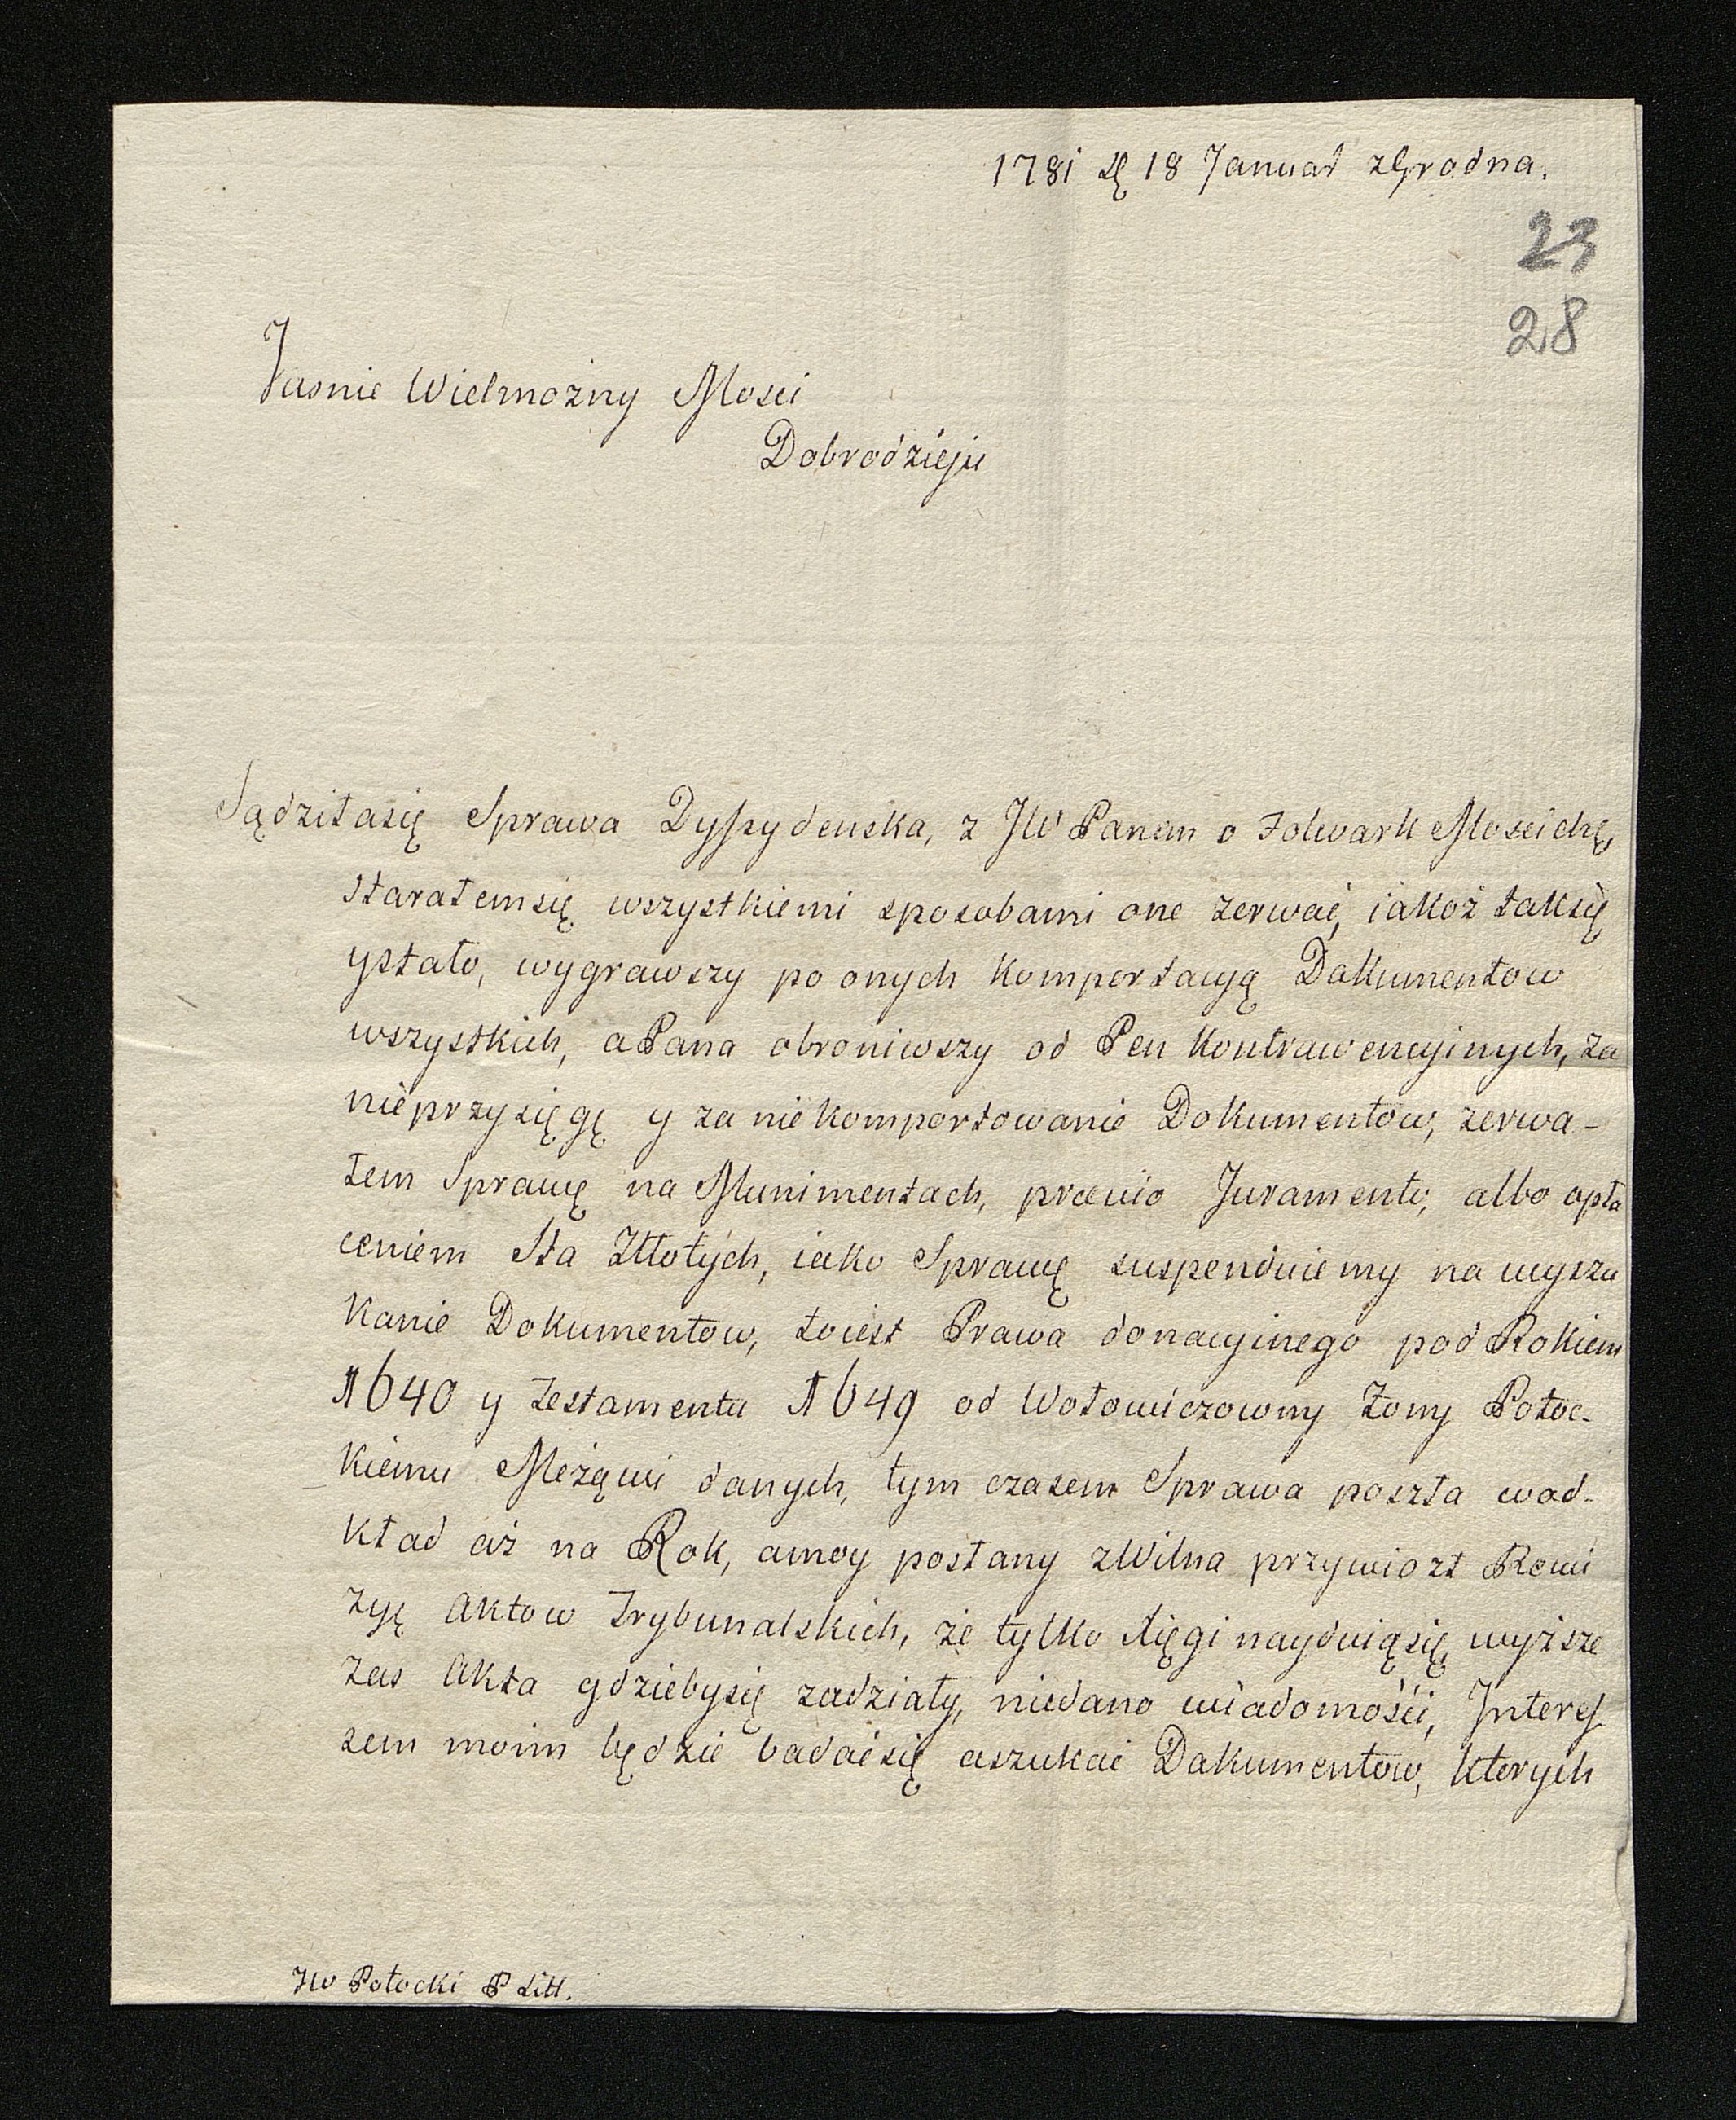 1781 D 18 Januar z Grodna.
23
28
Jasnie Wielmozny Mosci
Dobrodzieju
Sądziłasię Sprawa Dyssydenska, z JW Panem o Folwark Moscichę,
starałemsię wszystkiemi sposobami one zerwać, iakoż taksię
ystało, wygrawszy po onych komportacyą Dokumentow
wszystkich, a Pana obroniwszy od Pen Kontrawencyinych, za
nieprzysięgę y za niekomportowanie Dokumentow, zerwa-
łem Sprawę na Munimentach, prævio Juramento, albo opła
ceniem Sta Złłotych, iako Sprawę suspenduiemy na wyszu
kanie Dokumentow, toiest Prawa donacyinego pod Rokiem
1640 y Testamentu 1649 od Wołowiczowny Żony Potoc-
kiemu Mężowi danych, tym czasem Sprawa poszła wod-
kład aż na Rok, amoy posłany z Wilna przywiozł Rewi
zyę Aktow Trybunalskich, że tylko xięgi nayduiąsię, wyższe
zas Akta gdziebysię zadziały, niedano wiadomości, Interes
sem moim będzie badaćsię aszukać Dokumentow, ktorych
JW Potocki P Litt.